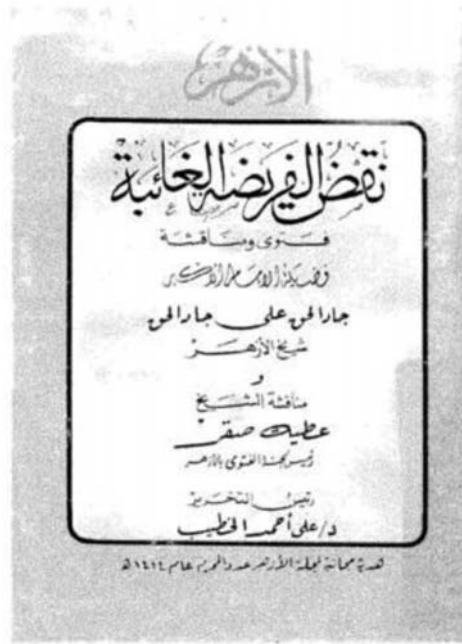 الأزهر
نقض الفريضة الغائبة
فتوى ومناقشة
فضيلة الإمام الأكبر
جاد الحق على جاد الحق
شيخ الأزهر
و
مناقشة الشيخ
عطية صقر
رئيس لجنة الفتوى بالأزهر
رئيس التحرير
د/على أحمد الخطيب
هدية مجانية لمجلة الأزهر عدد المحرم عام ١٤١٤ه